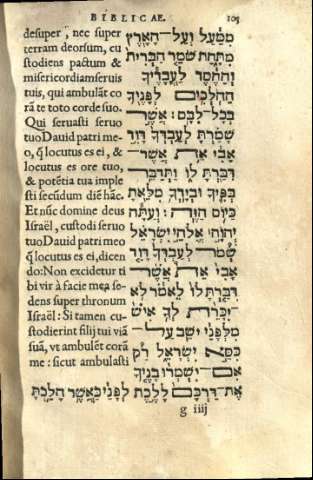 BIBLICAE. 103
desuper, nec super
terram deorsum, cu
stodiens pactum &
misericordiam seruis
tuis, qui ambulāt co
rā te toto corde suo.
Qui seruasti seruo
tuo Dauid patri me-
o, q̄ locutus es ei, &
locutus es ore tuo,
& potētia tua imple
sti secūdum diē hāc.
Et nūc domine deus
Israël, custodi seruo
tuo Dauid patri meo
q̄ locutus es ei, dicen
do: Non excidetur ti
bi vir à facie mea se-
dens super thronum
Israël: Si tamen cu-
stodierint filij tui viā
suā, vt ambulēt corā
me: sicut ambulasti
מִמַּעַל וְעַל־הָאָרֶץ
מִתָּחַת שֹׁמֵר הַבְּרִית
וְהַחֶסֶד לַעֲבָדֶיךָ
הַהֹלְכִים לְפָנֶיךָ
בְּכָל־לִבָּם: אֲשֶׁר
שָׁמַרְתָּ לְעַבְדְּךָ דָּוִד
אָבִי אֵת אֲשֶׁר־
דִּבַּרְתָּ לוֹ וַתְּדַבֵּר
בְּפִיךָ וּבְיָדְךָ מִלֵּאתָ
כַּיּוֹם הַזֶּה: וְעַתָּה
יְהוָה אֱלֹהֵי יִשְׂרָאֵל
שְׁמֹר לְעַבְדְּךָ דָוִד
אָבִי אֵת אֲשֶׁר
דִּבַּרְתָּ לּוֹ לֵאמֹר לֹא
יִכָּרֵת לְךָ אִישׁ
מִלְּפָנַי יֹשֵׁב עַל־
כִּסֵּא יִשְׂרָאֵל רַק
אִם־יִשְׁמְרוּ בָנֶיךָ
אֶת־דַּרְכָּם לָלֶכֶת לְפָנַי כַּאֲשֶׁר הָלַכְתָּ
g iiij